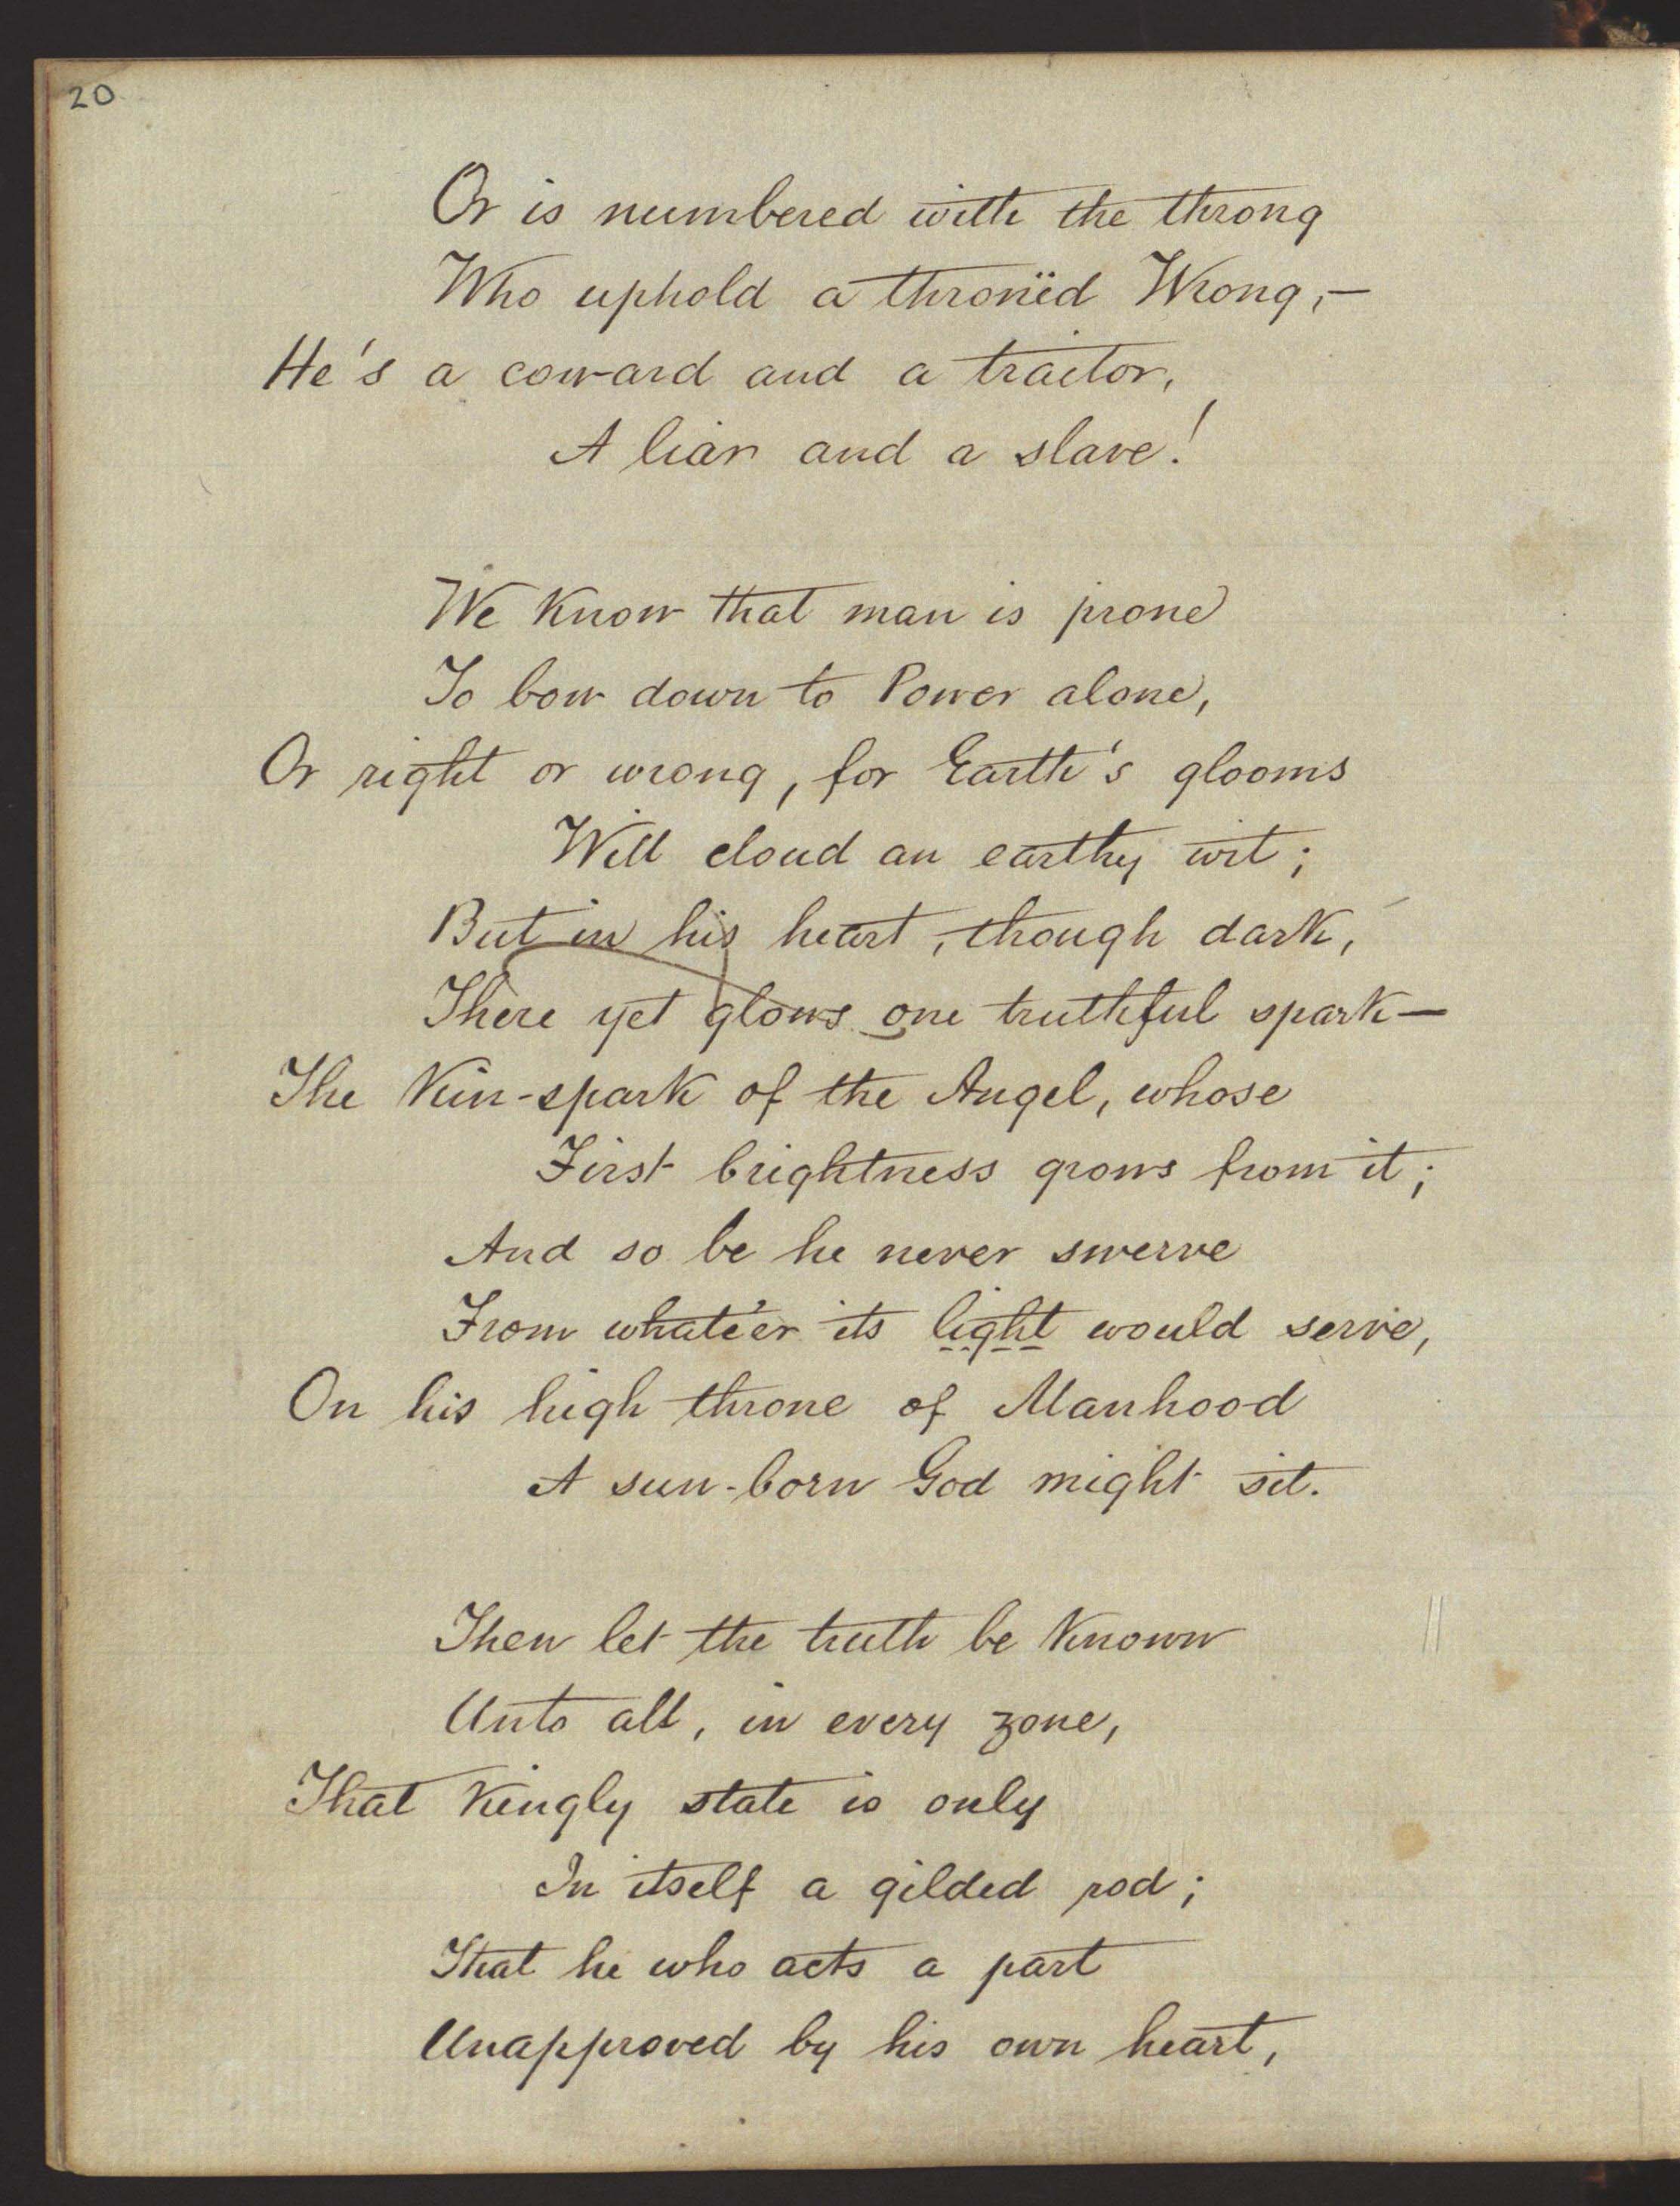 20
Or is numbered with the throng
Who uphold a thronëd Wrong,—
He's a coward and a traitor,
A liar and a slave!
We know that man is prone
To bow down to Power alone,
Or right or wrong, for Earth's glooms
Will cloud an earthy wit;
But in his heart, though dark,
There yet glows one truthful spark—
The kin-spark of the Angel, whose
First brightness grows from it;
And so be he never swerve
From whate'er its light would serve,
On his high throne of Manhood
A sun-born God might sit.
Then let the truth be known
Unto all, in every zone,
That kingly state is only
In itself a gilded rod;
That he who acts a part
Unapproved by his own heart,